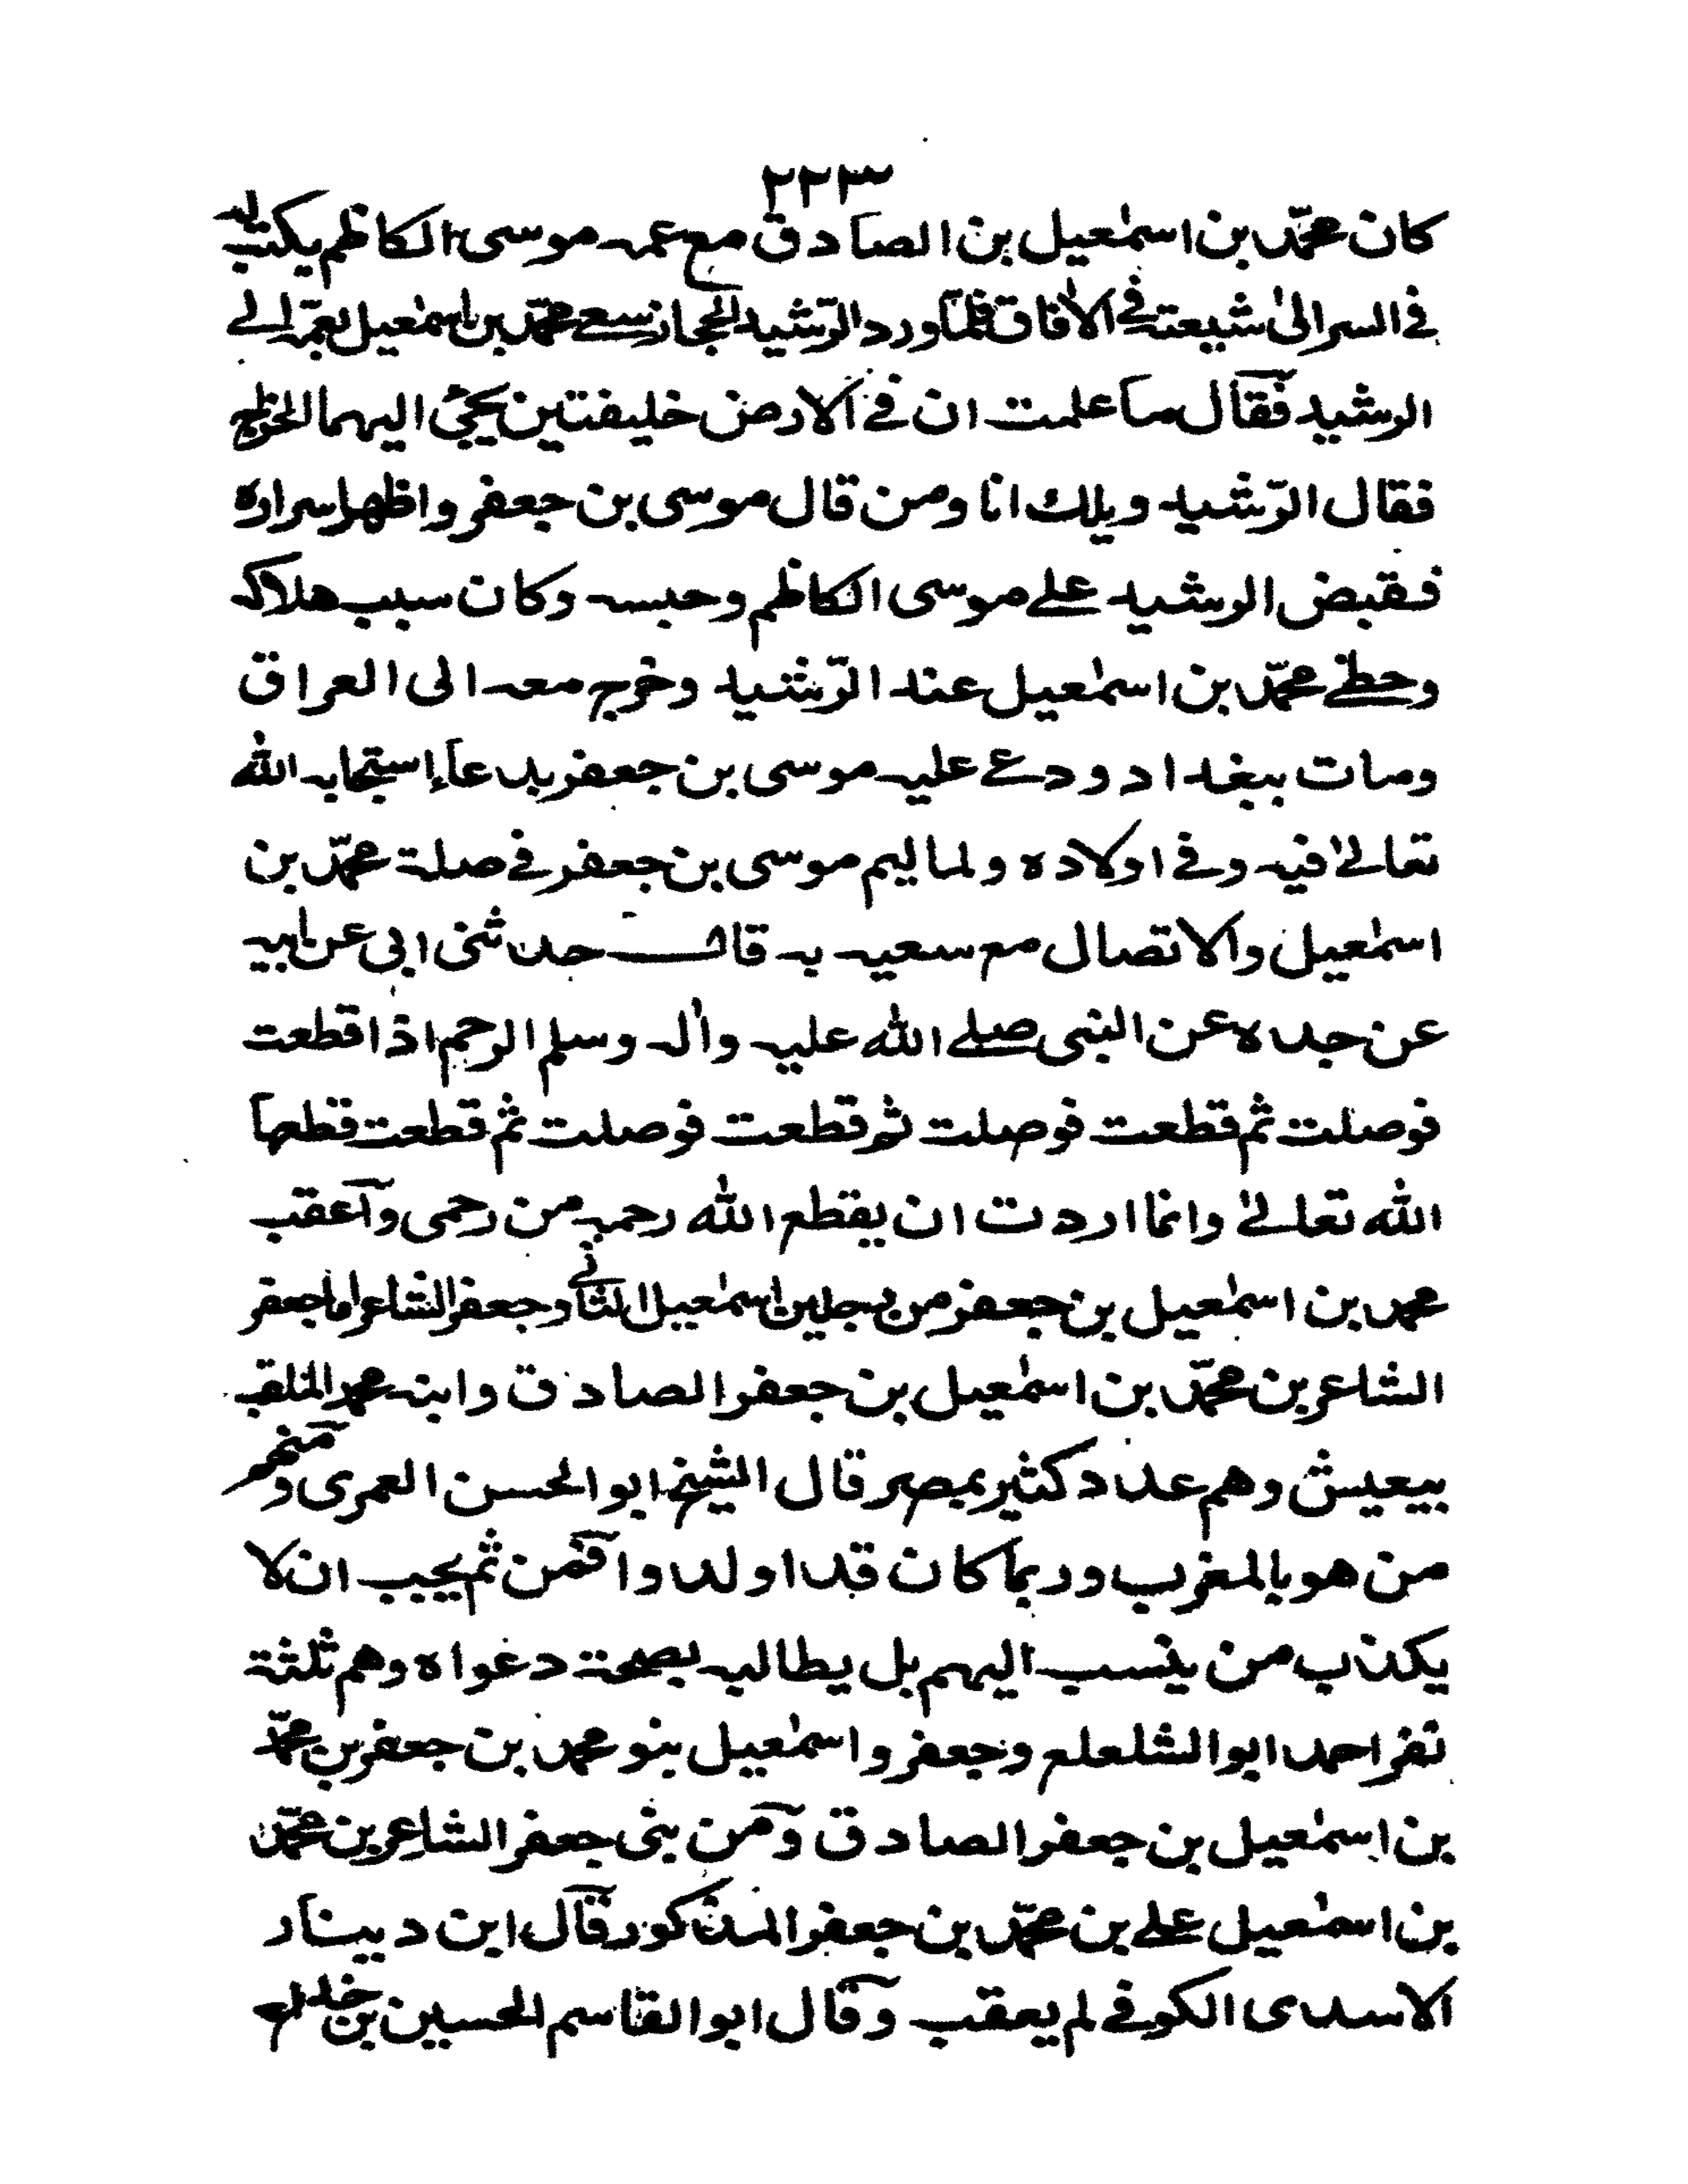 ٢٢٣
كان محمّد بن اسمٰعيل بن الصادق مع عمه موسى الكاظم يكتب له
فى السر الىٰ شيعته فى الاٰفاق فلمّا ورد الرّشيد الحجاز سعى محمّد بن اسمٰعيل بعمّه الى
الرشيد فقال ما علمت ان فى الارض خليفتين يجئ اليهما الخراج
فقال الرّشيد ويلك انا ومن قال موسى بن جعفر واظهر اسراره
فقبض الرشيد على موسى الكاظم وحبسه وكان سبب هلاكه
وحظى محمّد بن اسمٰعيل عند الرّشيد وخرج معه الى العراق
ومات ببغداد ودعى عليه موسى بن جعفر بدعاء استجابه الله
تعالىٰ فيه وفى اولاده ولما ليم موسى بن جعفر فى صلة محمّد بن
اسمٰعيل والاتصال مع سعيه به قال حدثنى ابى عن ابيه
عن جده عن النبى صلى الله عليه واٰله وسلم الرحم اذا قطعت
فوصلت ثم قطعت فوصلت ثم قطعت فوصلت ثم قطعت قطعها
الله تعالىٰ وانما اردت ان يقطع الله رحمه من رحمى وآعقب
محمد بن اسمٰعيل بن جعفر من رجلين اسمٰعيل الثانى وجعفر الشاعر اما جعفر
الشاعر بن محمّد بن اسمٰعيل بن جعفر الصادق وابنه محمد الملقب
ببعيش وهم عدد كثير بمصر قال الشيخ ابو الحسن العمرى ومنهم
من هو بالمغرب وربما كان قد اولدوا فمن ثم يجب ان لا
يكذب من ينسب اليهم بل يطالبه بصحة دعواه وهم ثلثة
نفر احمد ابو الشلعلع وجعفر واسمٰعيل بنو محمد بن جعفر بن محمّد
بن اسمٰعيل بن جعفر الصادق ومن بنى جعفر الشاعر بن محمّد
بن اسمٰعيل على بن محمّد بن جعفر المذكور قال ابن دينار
الاسدى الكوفى لم يعقب وقال ابو القاسم الحسين بن